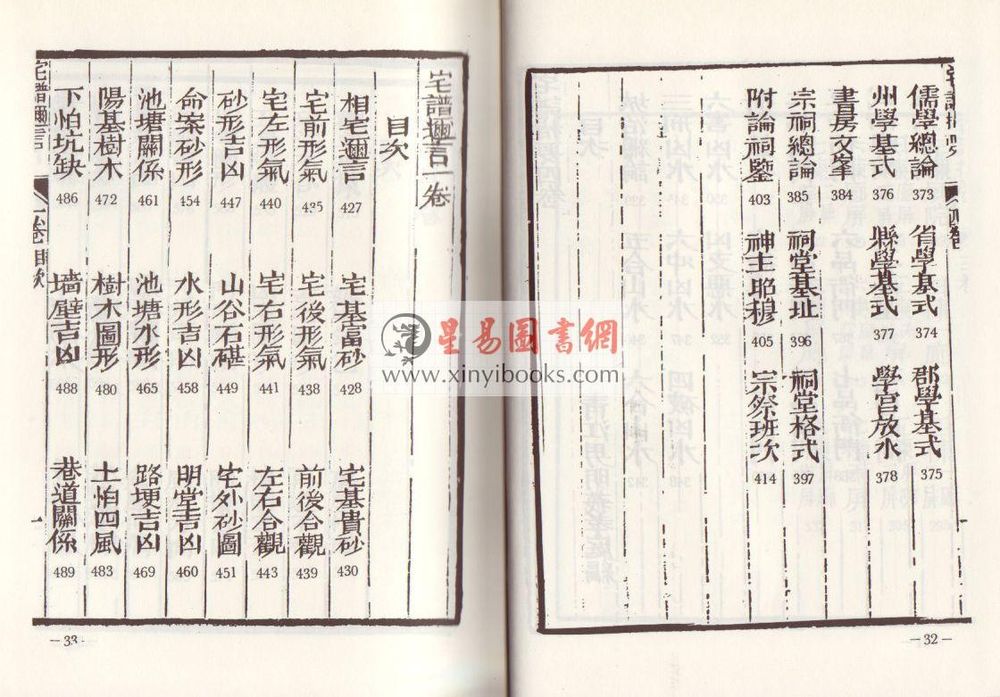 儒學總論 373 省學基式 374 郡學基式 375
州學基式 376 縣學基式 377 學官放水 378
書房文峯 384
宗祠總論 385 祠堂基址 396 祠堂格式 397
附論祠鑒 403 神主耶穆 405 宗祭班次 414
－32－
宅譜邇言一卷
目次
相宅邇言 427 宅基富砂 428 宅基貴砂 430
宅前形氣 435 宅後形氣 438 前後合觀 439
宅左形氣 440 宅右形氣 441 左右合觀 443
砂形吉凶 447 山谷石碪 449 宅外砂圖 451
命案砂形 454 水形吉凶 458 明堂吉凶 460
池塘關係 461 池塘水形 465 路埂吉凶 469
陽基樹木 472 樹木圖形 480 土怕四風 483
下怕坑缺 486 墙壁吉凶 488 巷道關係 489
宅譜邇言 一卷 目次 一
－33－
星易圖書網
www.xinyibooks.com